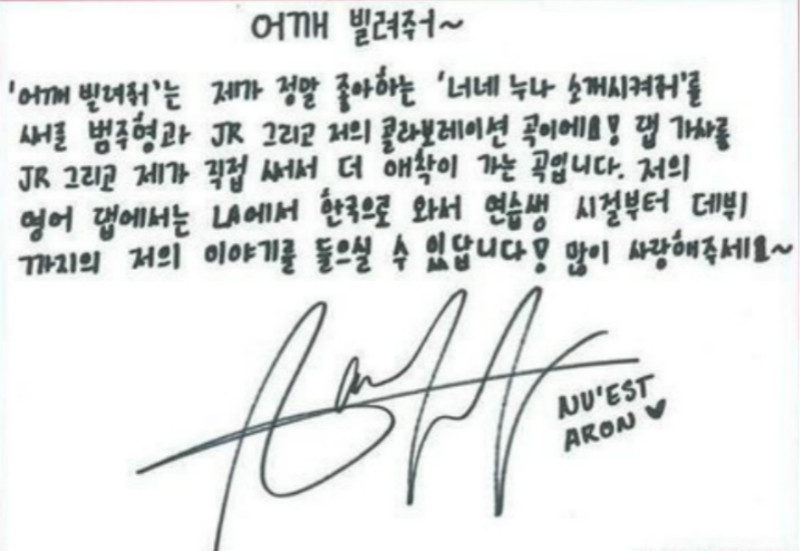 어깨 빌려줘~
'어깨 빌려줘'는 제가 정말 좋아하는 '너네 누나 소개시켜줘'를
써준 범주형과 JR 그리고 저의 콜라보레이션 곡이에요! 랩 가사를
JR 그리고 제가 직접 써서 더 애착이 가는 곡입니다. 저의
영어 랩에서는 LA에서 한국으로 와서 연습생 시절부터 데뷔
까지의 저의 이야기를 들으실 수 있답니다! 많이 사랑해주세요~
NU'EST
ARON ♥